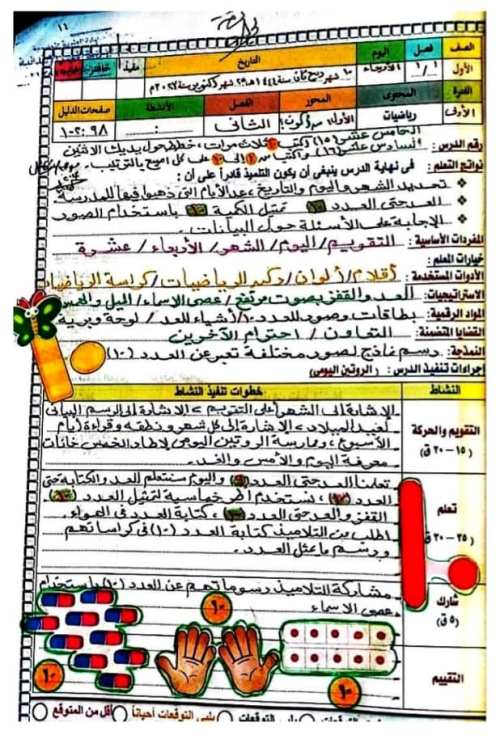 الصف
فصل
اليوم
التاريخ
الأول
١/١
الأربعاء
الفترة
المحتوى
المحور
الفصل
الأنشطة
صفحات الدليل
الأولى
رياضيات
الأول
الثاني
٩٨-١٠٢
رقم الدرس : الخامس عشر (١٥)
السادس عشر (١٦)
نواتج التعلم : في نهاية الدرس ينبغي أن يكون التلميذ قادراً على أن :
تحديد الشهر واليوم والتاريخ وعد الأيام التي ذهبوا فيها للمدرسة
العد حتى العدد تمثيل الكمية باستخدام الصور
الإجابة على الأسئلة حول البيانات.
المفردات الأساسية : التقويم / اليوم / الشهر / الأربعاء / عشرة
خيارات المعلم :
الأدوات المستخدمة : أقلام / ألوان / دكتر الرياضيات / كراسة الرياضيات
الاستراتيجيات : العد والقفز بصوت مرتفع / عصى الأسماء / الميل والهمس
المواد الرقمية : بطاقات وصور للعدد ١٠ / أشياء للعد / لوحة وبرية
القضايا المتضمنة : التعاون / احترام الآخرين
النمذجة : رسم نماذج لصور مختلفة تعبر عن العدد (١٠)
إجراءات تنفيذ الدرس : (الروتين اليومي)
النشاط
خطوات تنفيذ النشاط
التقويم والحركة
(١٥ - ٢٠ ق)
الإشارة إلى الشهر أعلى التقويم > الإشارة إلى الرسم البياني
لعيد الميلاد > الإشارة إلى كل شهر ونطقه وقراءة أيام
الأسبوع، وممارسة الروتين اليومي لإطار الخمس خانات
معرفة اليوم والأمس والغد.
تعلم
(٢٥ - ٣٠ ق)
تعلمنا العد حتى العدد واليوم سنتعلم العد والكتابة حتى
العدد ، نستخدم أطر خماسية لتمثيل العدد
القفز والعد حتى العدد ، كتابة العدد في الهواء.
اطلب من التلاميذ كتابة العدد (١٠) في كراساتهم
ورسم ما يمثل العدد.
شارك
(٥ ق)
مشاركة التلاميذ رسوماتهم عن العدد (١٠) باستخدام
عصى الأسماء
التقييم
١٠
١٠
١٠
يلبي التوقعات
يلبي التوقعات أحياناً
أقل من المتوقع